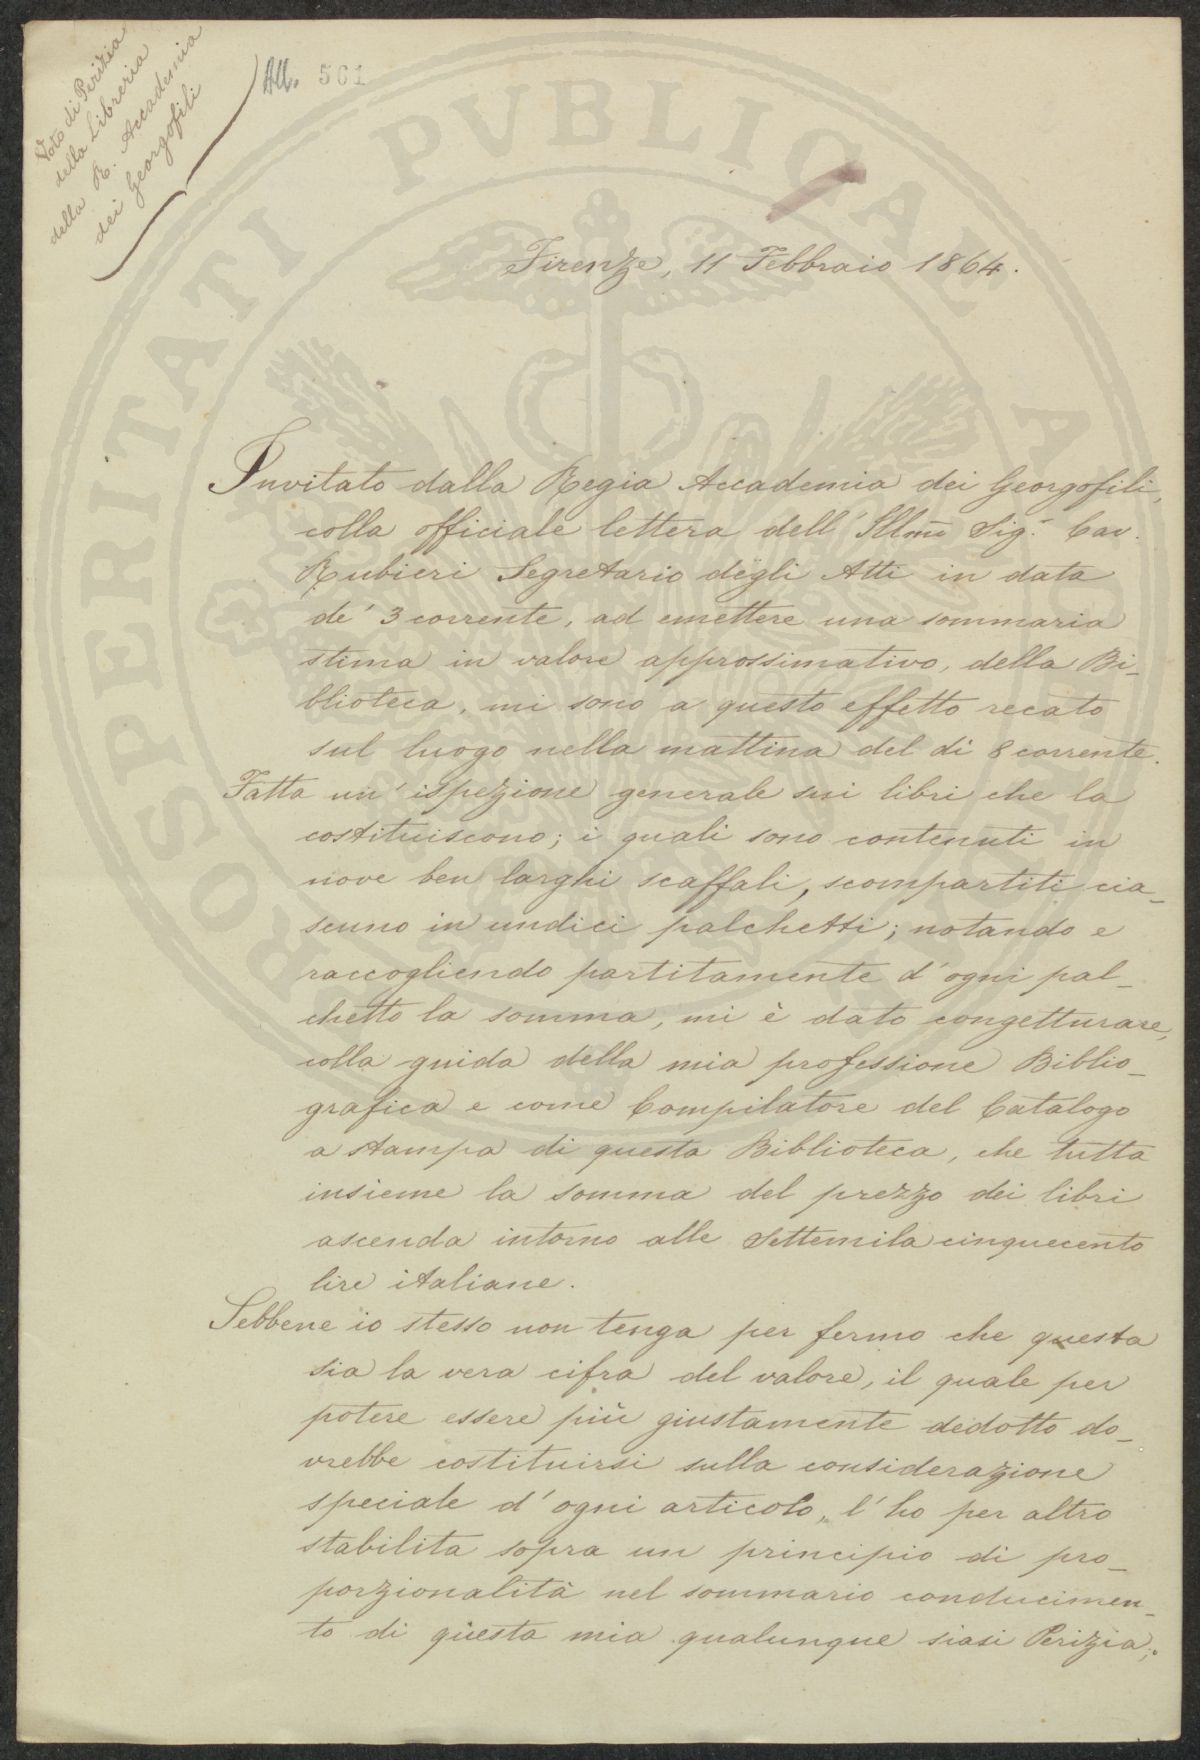 Voto di Perizia
della Libreria
della R. Accademia
dei Georgofili
All. 561
PROSPERITATI PUBLICAE AUGENDAE
Firenze, 11 Febbraio 1864.
Invitato dalla Regia Accademia dei Georgofili,
colla officiale lettera dell' Illmo Sig.r Cav.
Rubieri Segretario degli Atti in data
de' 3 corrente, ad emettere una sommaria
stima in valore approssimativo, della Bi-
blioteca, mi sono a questo effetto recato
sul luogo nella mattina del dì 8 corrente.
Fatta un' ispezione generale sui libri che la
costituiscono; i quali sono contenuti in
nove ben larghi scaffali, scompartiti cia-
scuno in undici palchetti; notando e
raccogliendo partitamente d' ogni pal-
chetto la somma, mi è dato congetturare,
colla guida della mia professione Biblio-
grafica e come Compilatore del Catalogo
a stampa di questa Biblioteca, che tutta
insieme la somma del prezzo dei libri
ascenda intorno alle Settemila cinquecento
lire italiane.
Sebbene io stesso non tenga per fermo che questa
sia la vera cifra del valore, il quale per
potere essere più giustamente dedotto do-
vrebbe costituirsi sulla considerazione
speciale d' ogni articolo, l' ho per altro
stabilita sopra un principio di pro-
porzionalità nel sommario conducimen-
to di questa mia qualunque siasi Perizia;